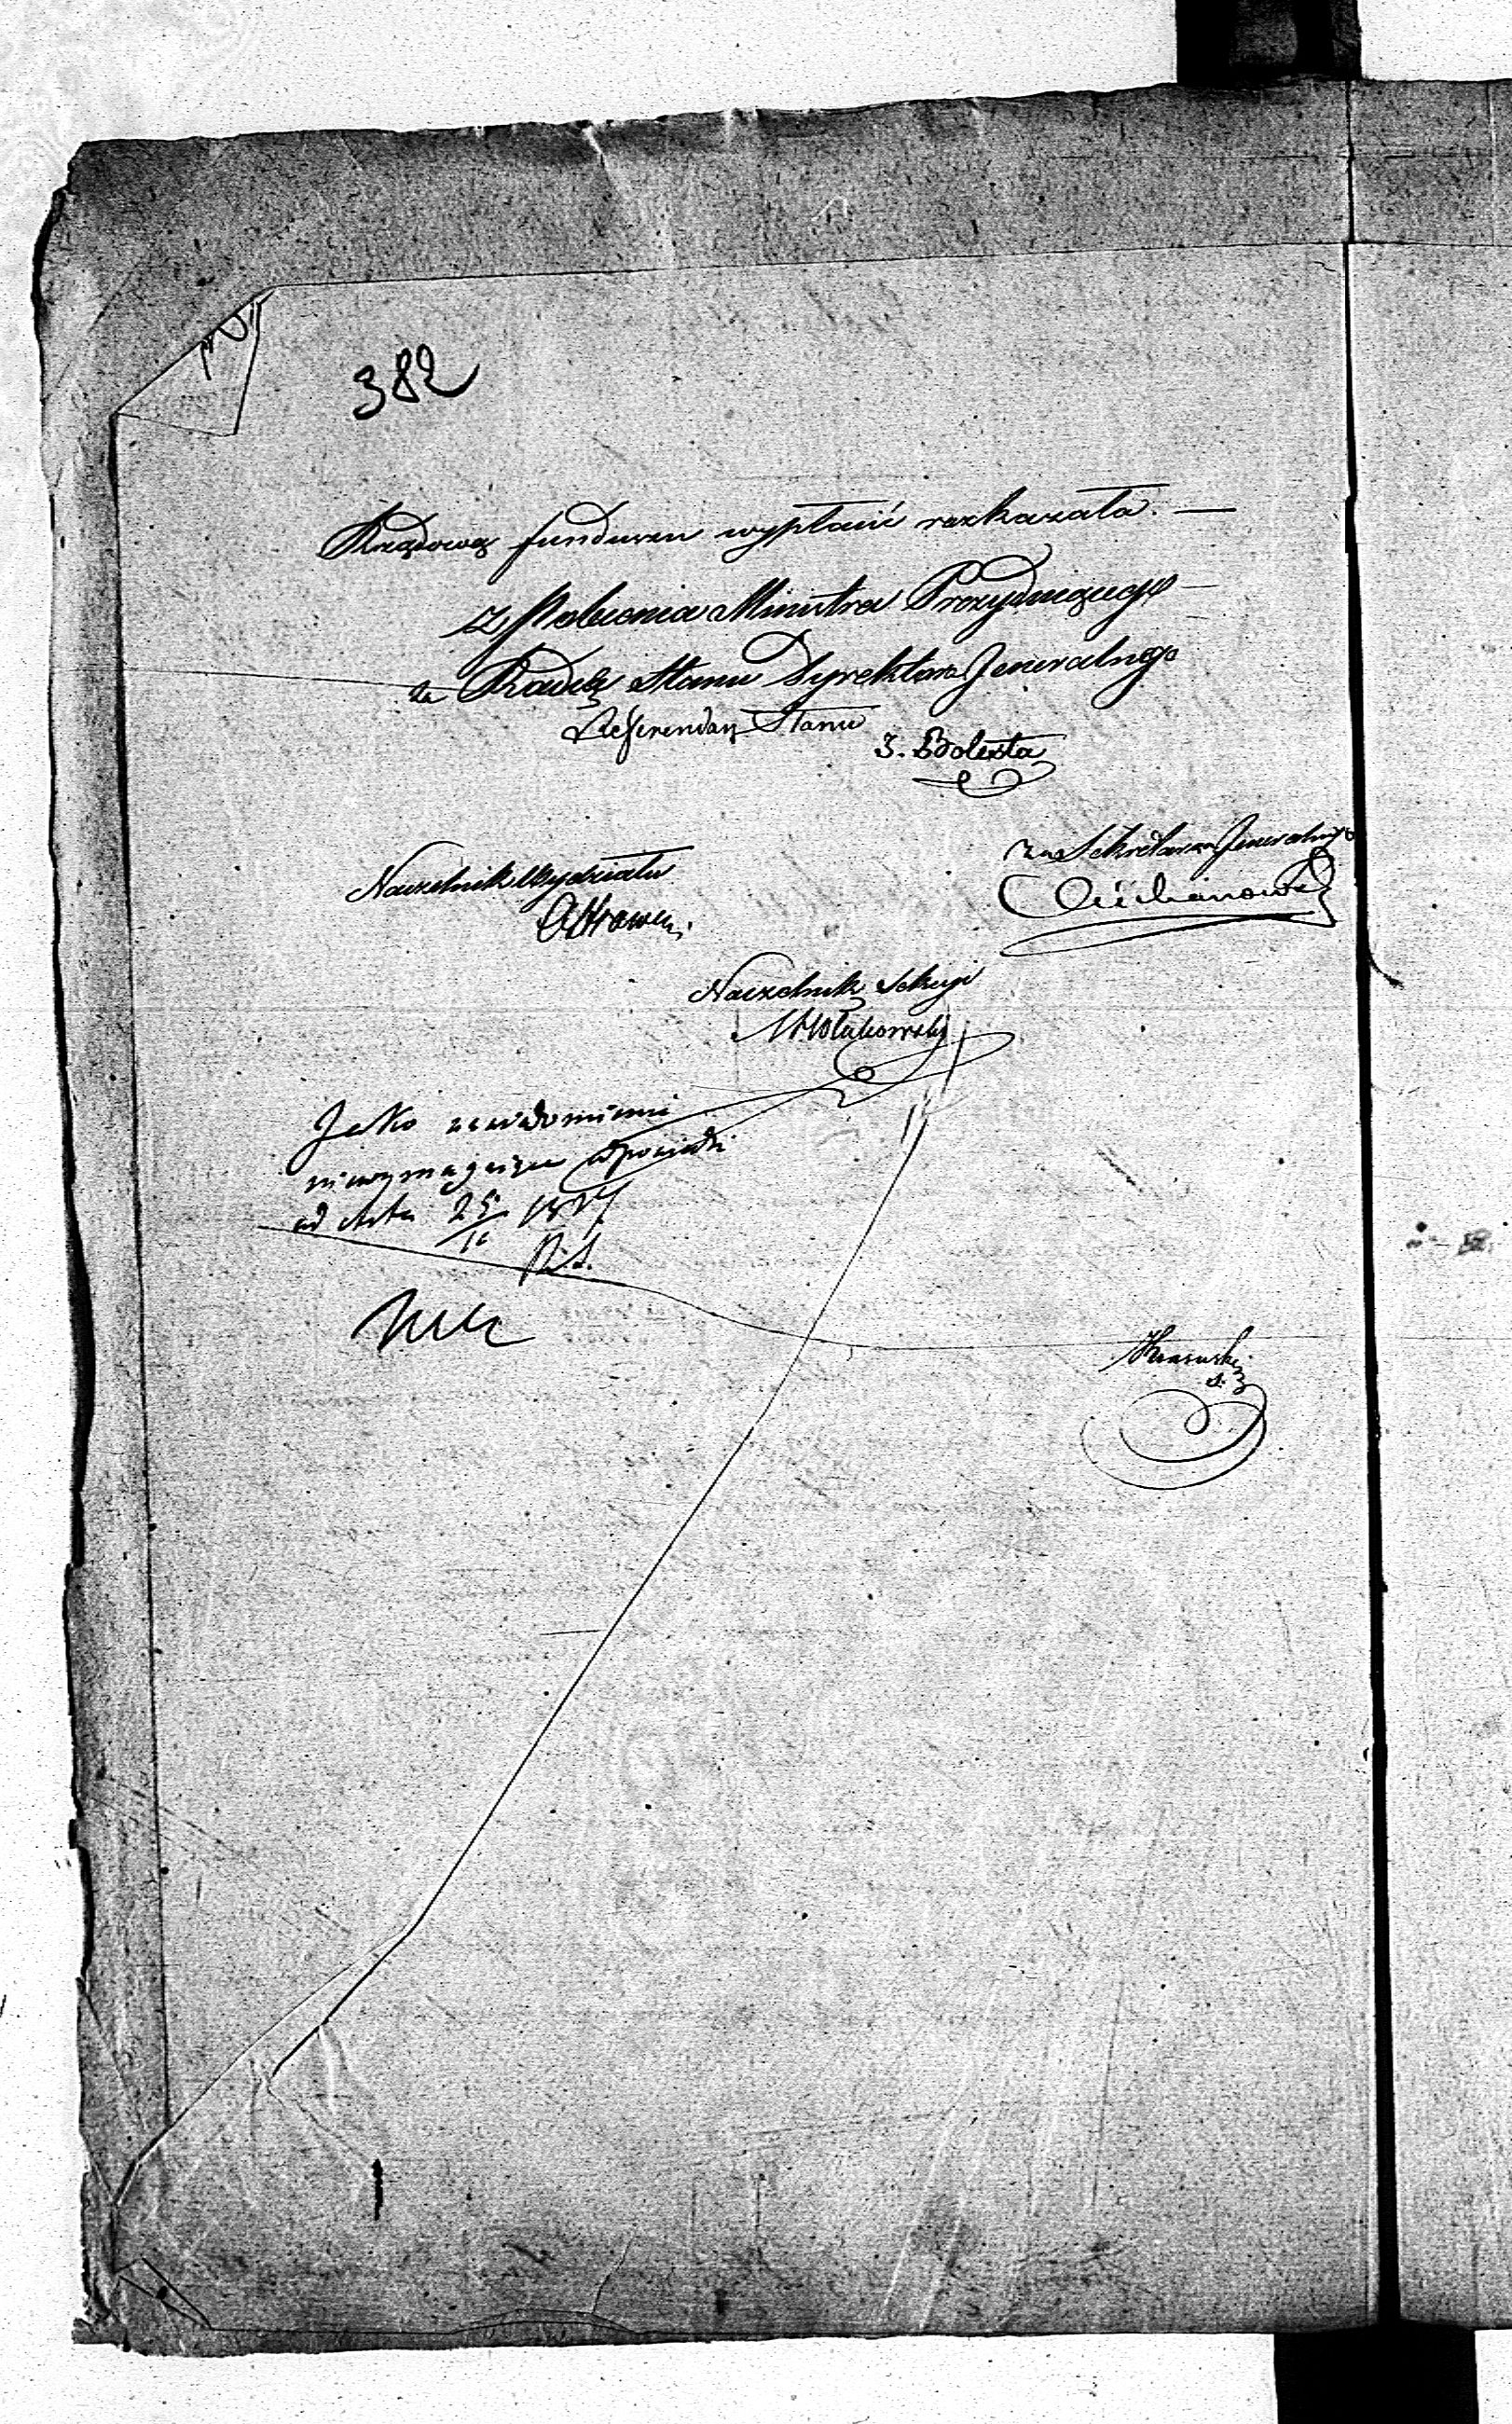 382
Rządową funduszu wypłacić rozkazała. —
Z Polecenia Ministra Prezydującego
za Radcę Stanu Dyrektora Jeneralnego
Referendarz Stanu
J. Boleszta
za Sekretarza Jeneralnego
Ciechanowski
Naczelnik Wydziału
Naczelnik Sekcyi
Jako zawiadomienie
niewymagające odpowiedzi
ad acta 25/10